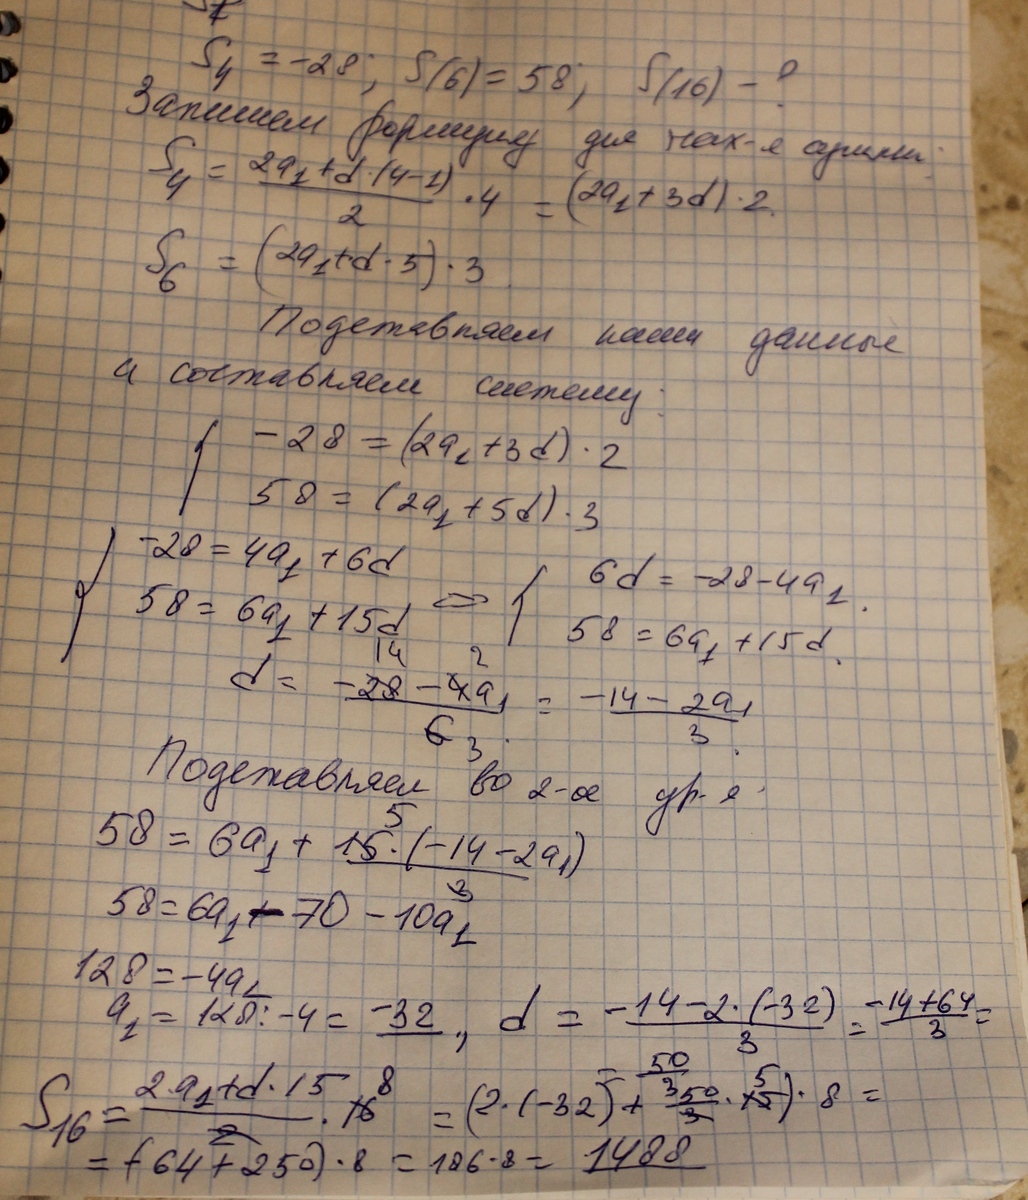 S₄ = -28; S(6) = 58; S(16) - ?
Запишем формулу для нах-я суммы:
S₄ = (2a₁ + d·(4-1))/2 · 4 = (2a₁ + 3d)·2
S₆ = (2a₁ + d·5)·3
Подставляем наши данные
и составляем систему:
{ -28 = (2a₁ + 3d)·2
58 = (2a₁ + 5d)·3
{ -28 = 4a₁ + 6d ⇔ { 6d = -28 - 4a₁
58 = 6a₁ + 15d 58 = 6a₁ + 15d
d = (-28 - 4a₁)/6 = (-14 - 2a₁)/3
14 2 3
Подставляем во 2-ое ур-е
58 = 6a₁ + 15·(-14 - 2a₁)/3
5
58 = 6a₁ - 70 - 10a₁
128 = -4a₁
a₁ = 128 : -4 = -32, d = (-14 - 2·(-32))/3 = (-14 + 64)/3 =
= 50/3
S₁₆ = (2·a₁ + d·15)/2 · 16 8 = (2·(-32) + 50/3 · 15 5)·8 =
= (-64 + 250)·8 = 186·8 = 1488